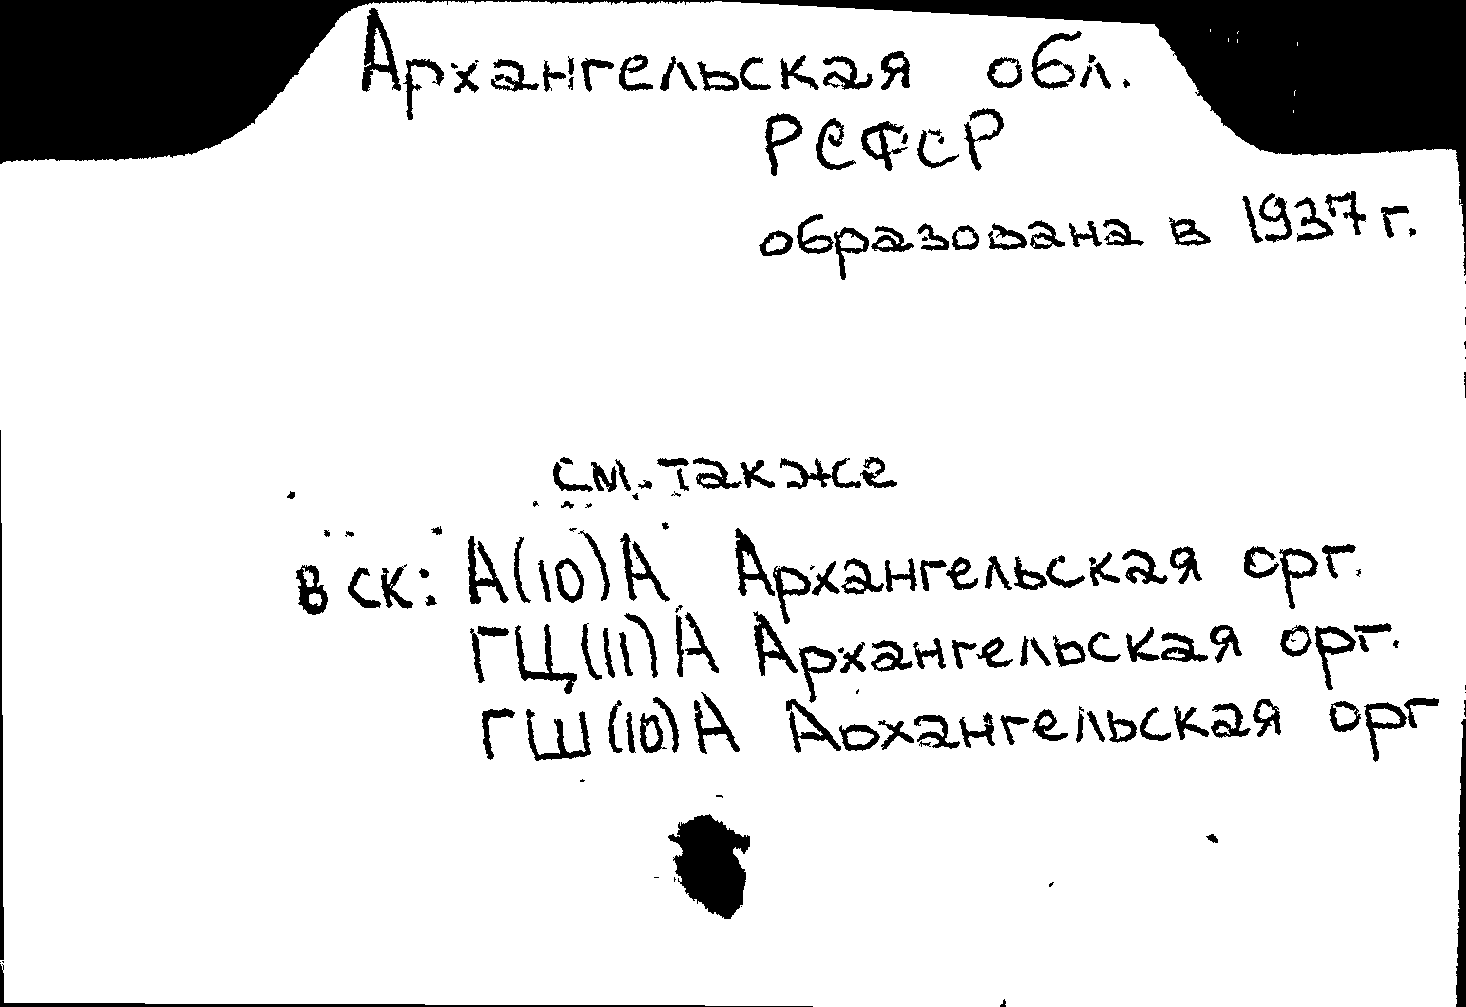 Архангельская обл.
РСФСР
образована в 1937 г.
см. также
в СК: А(10)А Архангельская орг.
ГЦ(11)А Архангельская орг.
ГШ(10)А Архангельская орг